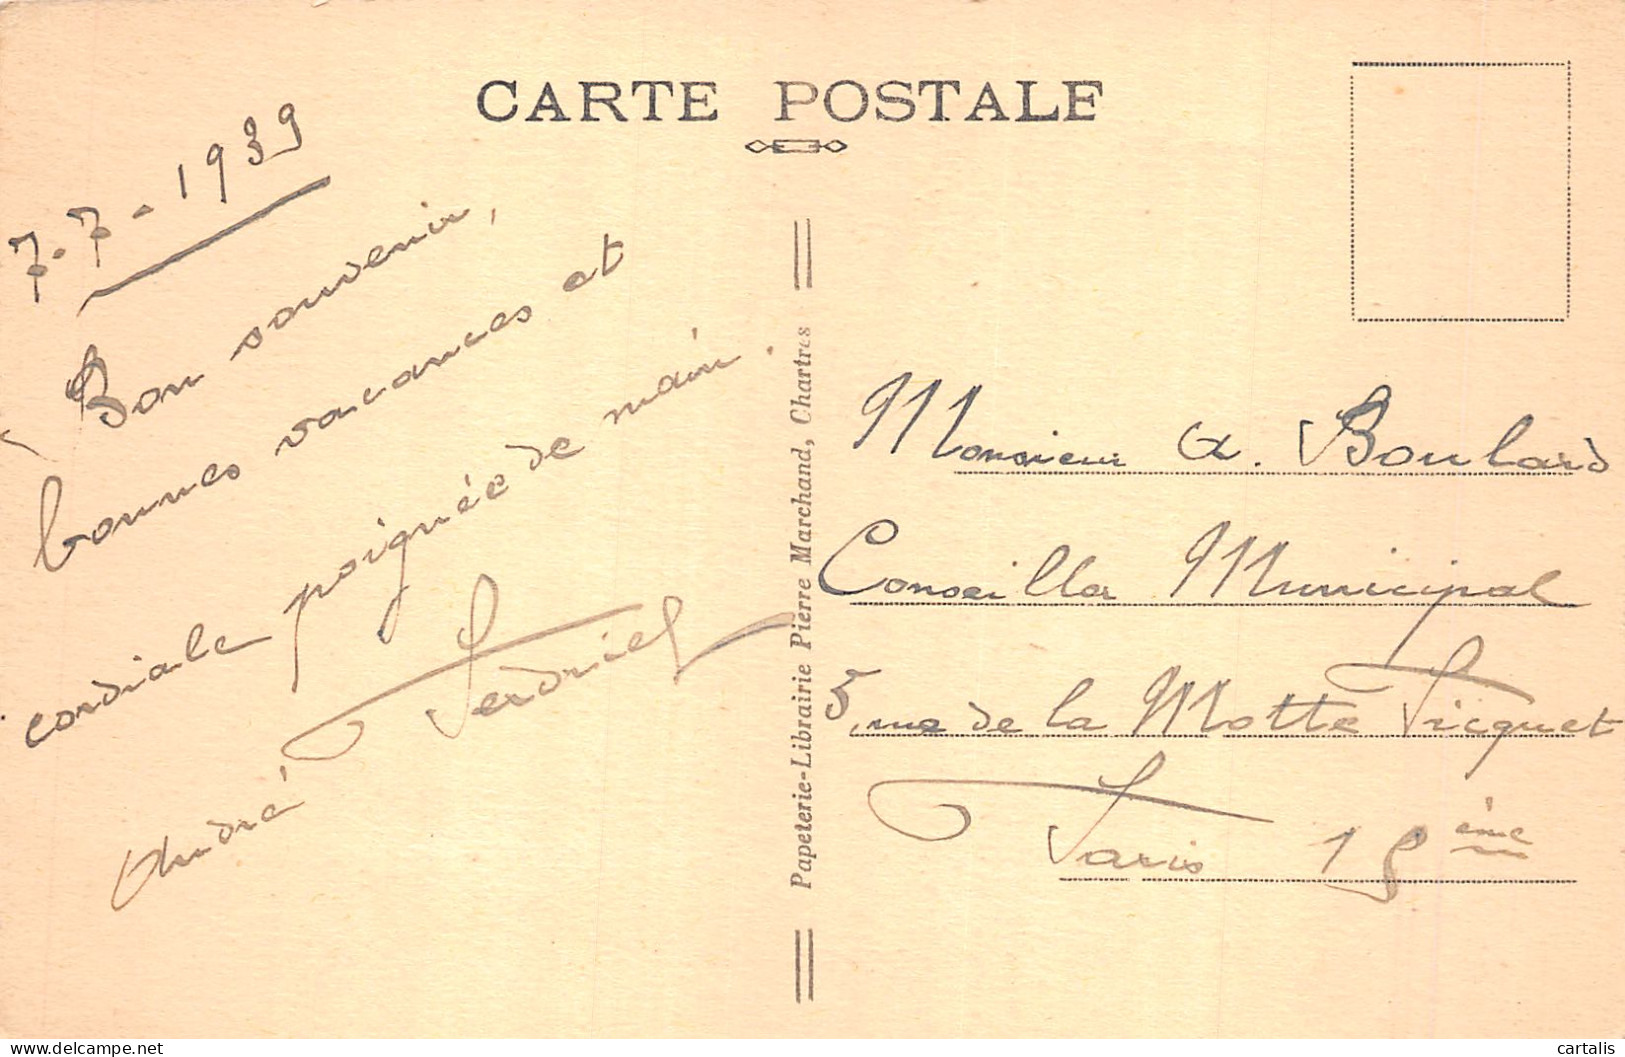 CARTE POSTALE
7-7-1939
Bon souvenir,
bonnes vacances et
cordiale poignée de main.
André
Papeterie-Librairie Pierre Marchand, Chartres
Monsieur A. Boulard
Conseiller Municipal
5, rue de la Motte Picquet
Paris 15ème
delcampe.net
cartalis